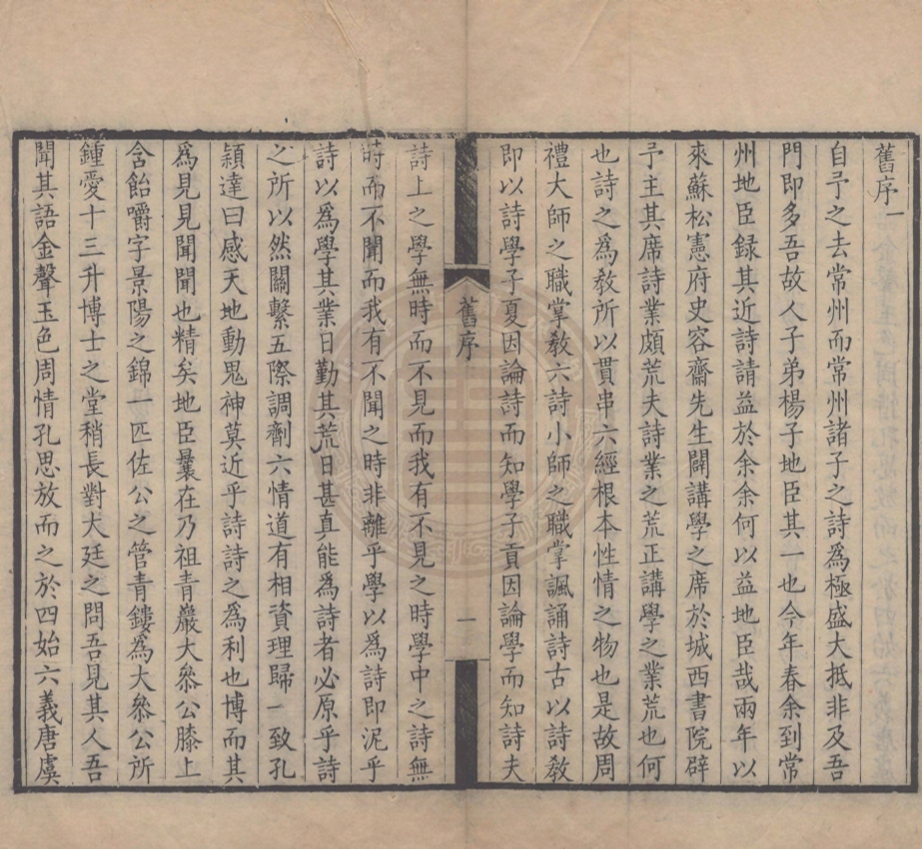 舊序一
自予之去常州而常州諸子之詩爲極盛大抵非及吾
門即多吾故人子弟楊子地臣其一也今年春余到常
州地臣録其近詩請益於余余何以益地臣哉兩年以
來蘇松憲府史容齋先生闢講學之席於城西書院辟
予主其席詩業頗荒夫詩業之荒正講學之業荒也何
也詩之為敎所以貫串六經根本性情之物也是故周
禮大師之職掌敎六詩小師之職掌諷誦詩古以詩敎
即以詩學子夏因論詩而知學子貢因論學而知詩夫
舊序
一
詩上之學無時而不見而我有不見之時學中之詩無
時而不聞而我有不聞之時非離乎學以爲詩即泥乎
詩以爲學其業日勤其荒日甚真能為詩者必原乎詩
之所以然關繫五際調劑六情道有相資理歸一致孔
穎達曰感天地動鬼神莫近乎詩詩之為利也博而其
爲見見聞聞也精矣地臣曩在乃祖青巖大叅公膝上
含飴嚼字景陽之錦一匹佐公之管青鏤為大叅公所
鍾愛十三升博士之堂稍長對大廷之問吾見其人吾
聞其語金聲玉色周情孔思放而之於四始六義唐虞